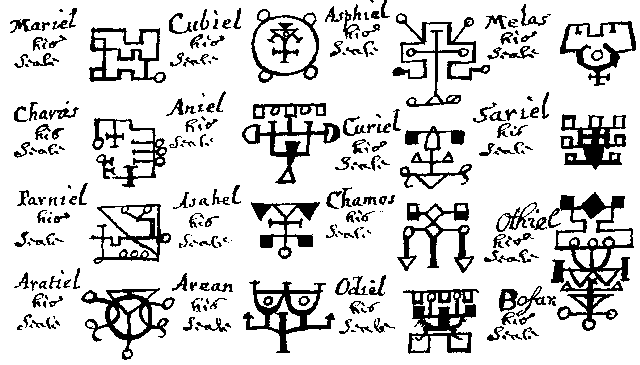 Mariel
his
Seale
Cubiel
his
Seale
Asphiel
his
Seale
Melas
his
Seale
Charas
his
Seale
Aniel
his
Seale
Curiel
his
Seale
Sariel
his
Seale
Parniel
his
Seale
Asahel
his
Seale
Chamos
his
Seale
Othiel
his
Seale
Aratiel
his
Seale
Arean
his
Seale
Odiel
his
Seale
Bofar
his
Seale